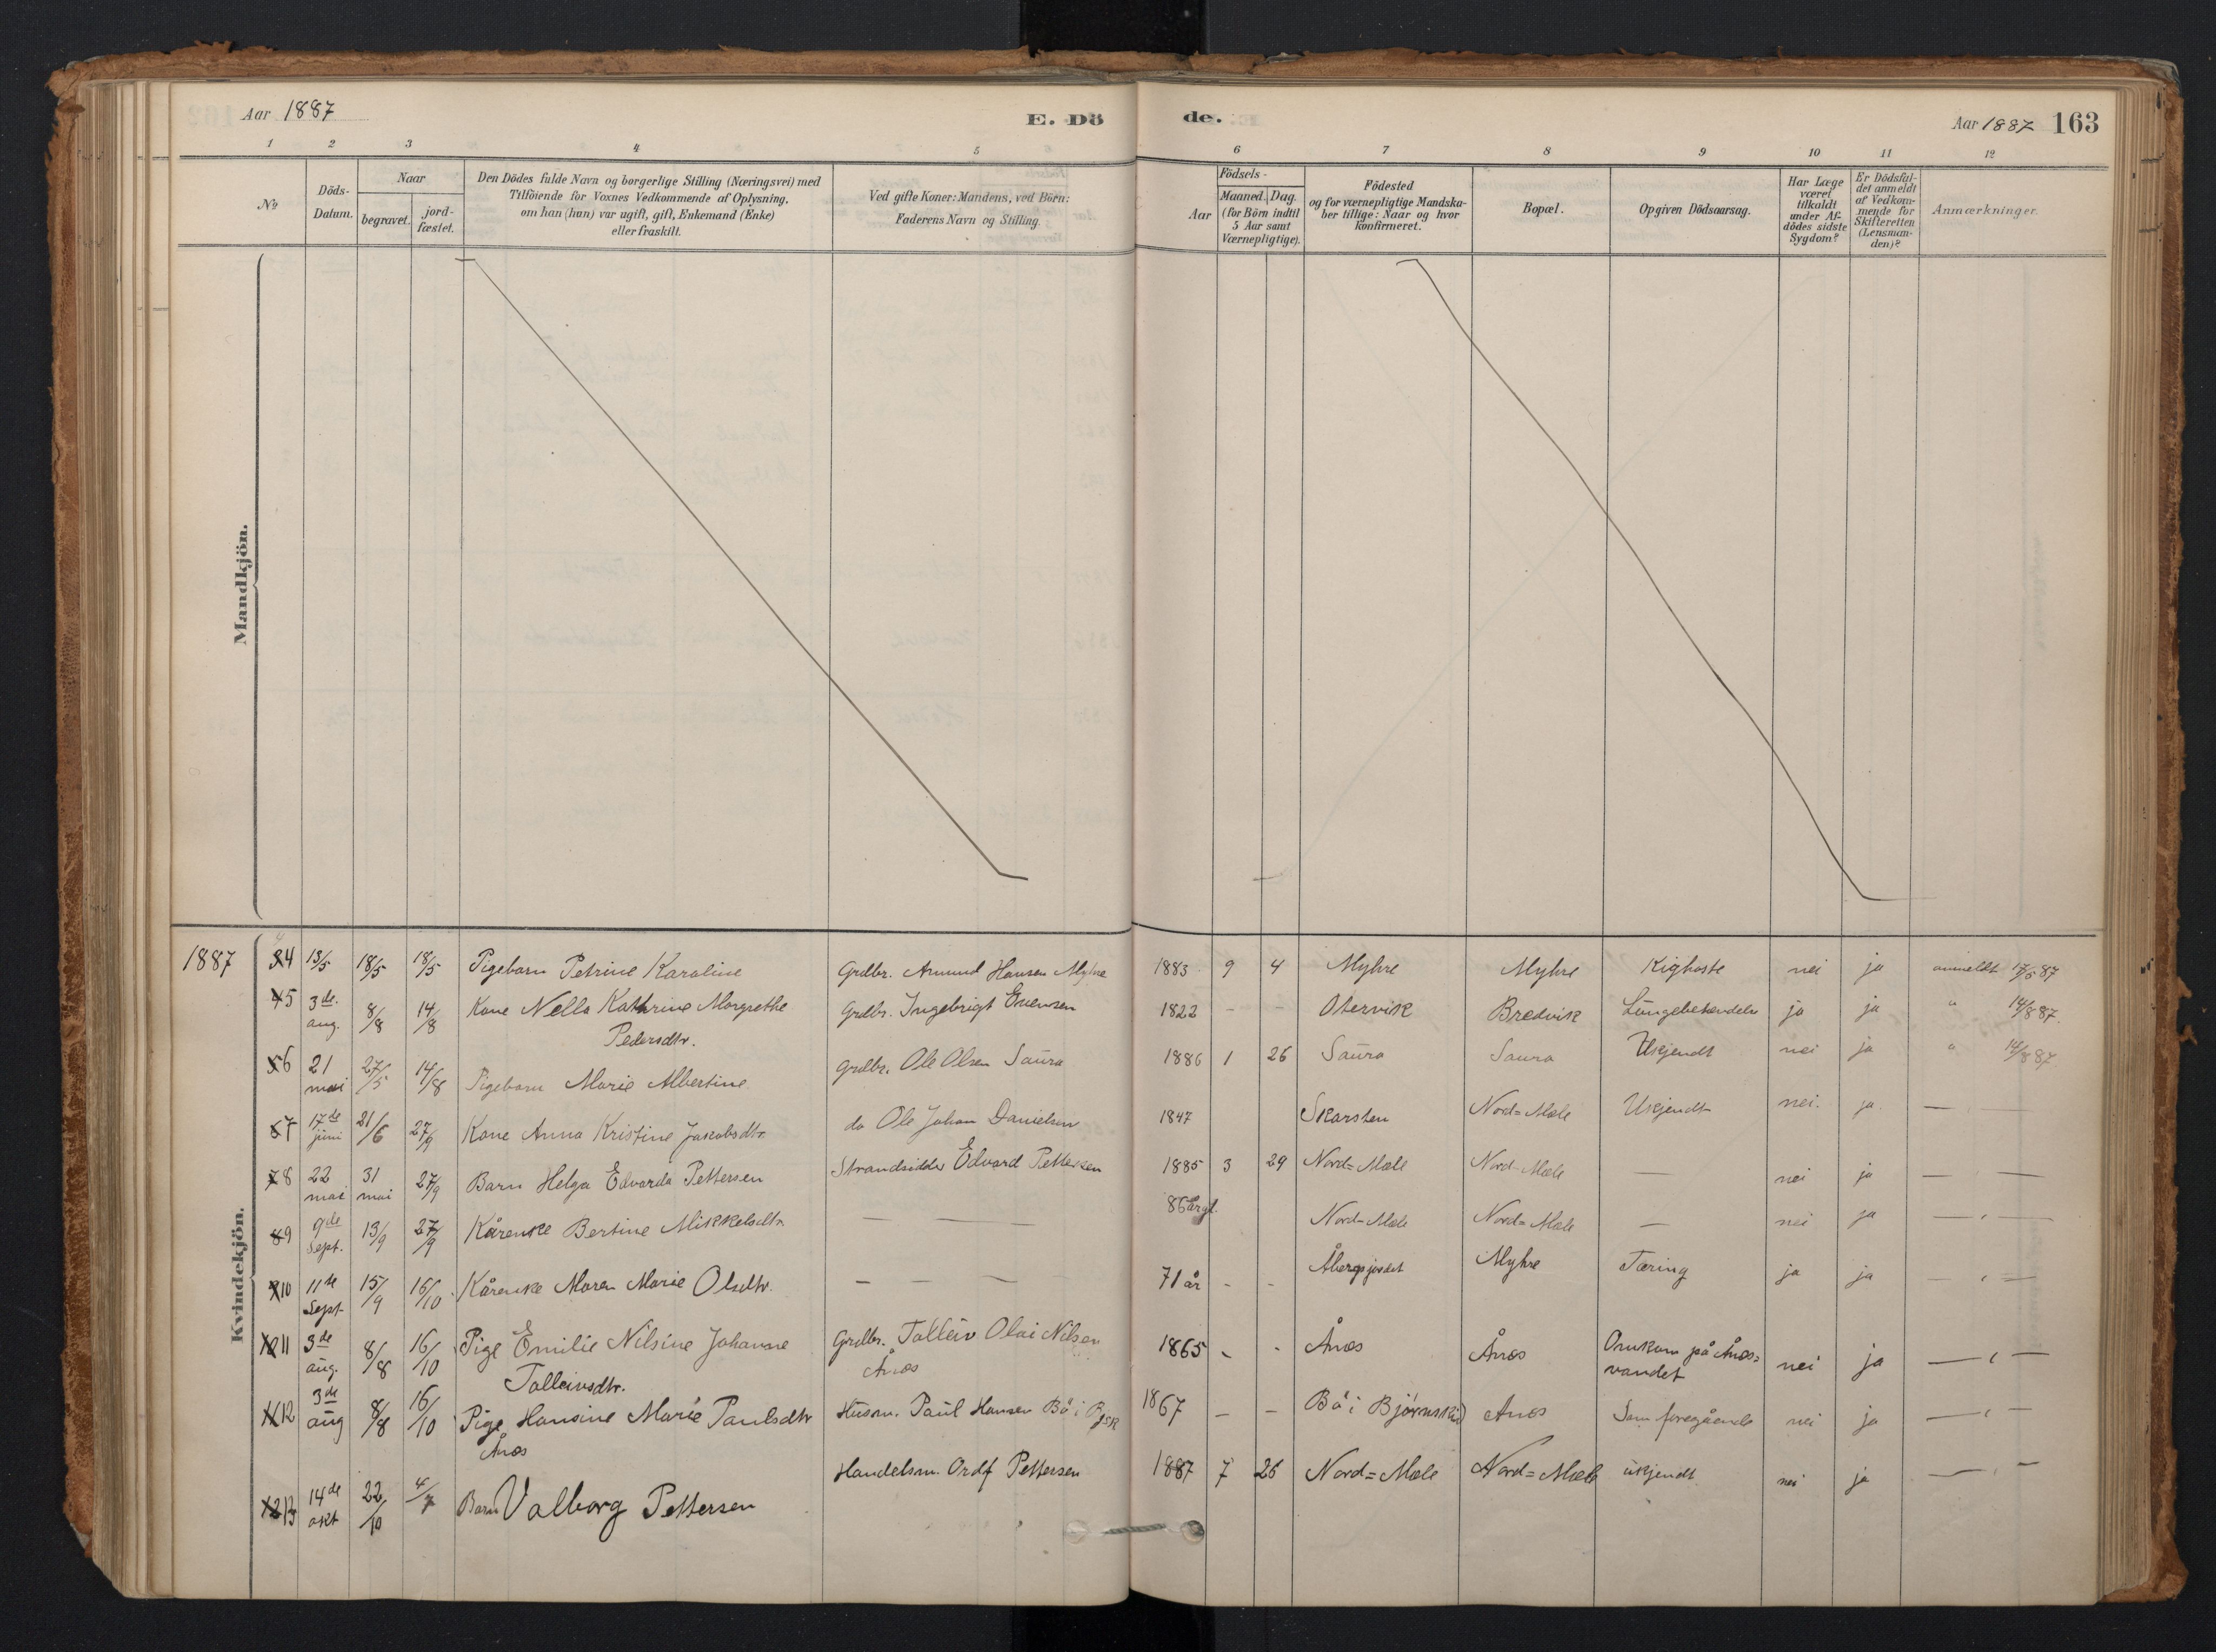 Aar 1887
E. Dö
de.
Aar 1887 163
1 2 3 4 5 6 7 8 9 10 11 12
№
Döds-
Datum.
Naar
begravet.
jord-
fæstet.
Den Dödes fulde Navn og borgerlige Stilling (Næringsvei) med
Tilföiende for Voxnes Vedkommende af Oplysning,
om han (hun) var ugift, gift, Enkemand (Enke)
eller fraskilt.
Ved gifte Koner: Mandens, ved Börn:
Faderens Navn og Stilling.
Aar
Födsels-
Maaned. Dag.
(for Börn indtil
5 Aar samt
Værnepligtige).
Födested
og for værnepligtige Mandska-
ber tillige: Naar og hvor
konfirmeret.
Bopæl.
Opgiven Dödsaarsag.
Har Læge
været
tilkaldt
under Af-
dödes sidste
Sygdom?
Er Dödsfal-
det anmeldt
af Vedkom-
mende for
Skifteretten
(Lensman-
den)?
Anmærkninger.
Mandkjön.
Kvindekjön.
1887
4 13/5 18/5 18/5 Pigebarn Petrine Karoline Grdbr. Amund Hansen Myhre 1883 9 4 Myhre Myhre Kighoste nei ja anmeldt 17/5 87
5 3de aug. 8/8 14/8 Kone Nella Kathrine Margrethe Pedersdtr. Grdbr. Ingebrigt Evensen 1822 - - Otervik Bredvik ja ja " 14/8 87.
6 21 mai 27/5 14/8 Pigebarn Marie Albertine Grdbr. Ole Olsen Saura 1886 1 26 Saura Saura Ukjendt nei ja " 14/8 87.
7 17de juni 21/6 27/9 Kone Anna Kristine Jakobsdtr. do Ole Johan Danielsen 1847 Skarsten Nord=Mæle Ukjendt nei. ja. —
8 22 mai 31 mai 27/9 Barn Helga Edvarda Pettersen Strandsidder Edvard Pettersen 1885 3 29 Nord=Mæle Nord=Mæle — nei ja — —
9 9de Sept. 13/9 27/9 Kårenke Bertine Mikkelsdtr. — — — 86 årgl. Nord=Mæle Nord=Mæle — nei ja — " —
10 11de Sept. 15/9 16/10 Kårenke Maren Marie Olsdtr. — — — 71 år - - Åbergsjordet Myhre Tæring ja ja — " —
11 3de aug. 8/8 16/10 Pige Emilie Nilsine Johanne Tolleivsdtr. Grdbr. Tolleiv Olai Nilsen Ånæs 1865 - - Ånæs Ånæs Omkom på Ånæs=vandet nei ja — " —
12 3de aug 8/8 16/10 Pige Hansine Marie Paulsdtr Ånæs Husm. Paul Hansen Bö i 1867 - - Bö i Björnskin Ånæs Som foregående nei ja — " —
13 14de okt 22/10 4/7 Barn Valborg Pettersen Handelsm. Ordf Pettersen 1887 7 26 Nord=Mæle Nord=Mæle ukjendt nei ja — " —